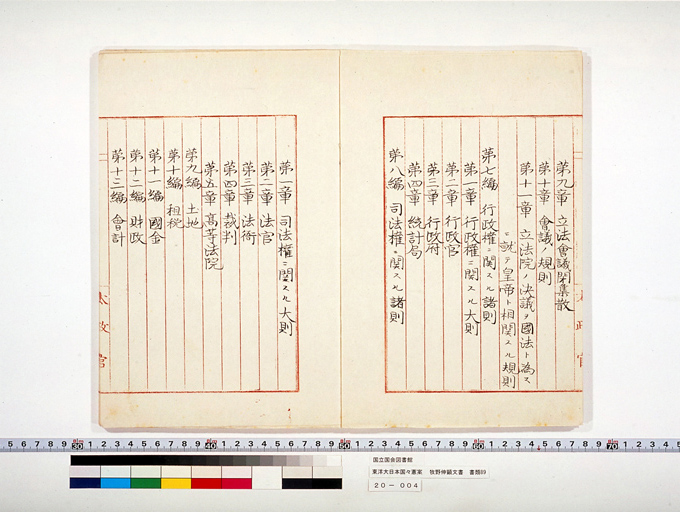 第九章 立法会議開集散
第十章 會議ノ規則
第十一章 立法院ノ決議ヲ國法ト為ス
ニ就テ皇帝ト相関スル規則
第七編 行政権ニ関スル諸則
第一章 行政権ニ関スル大則
第二章 行政官
第三章 行政府
第四章 統計局
第八編 司法権ニ関スル諸則
第一章 司法権ニ関スル大則
第二章 法官
第三章 法衙
第四章 裁判
第五章 高等法院
第九編 土地
第十編 租税
第十一編 國金
第十二編 財政
第十三編 會計
太政官
太政官
国立国会図書館
東洋大日本国々憲案 牧野伸顕文書 書類69
20－004